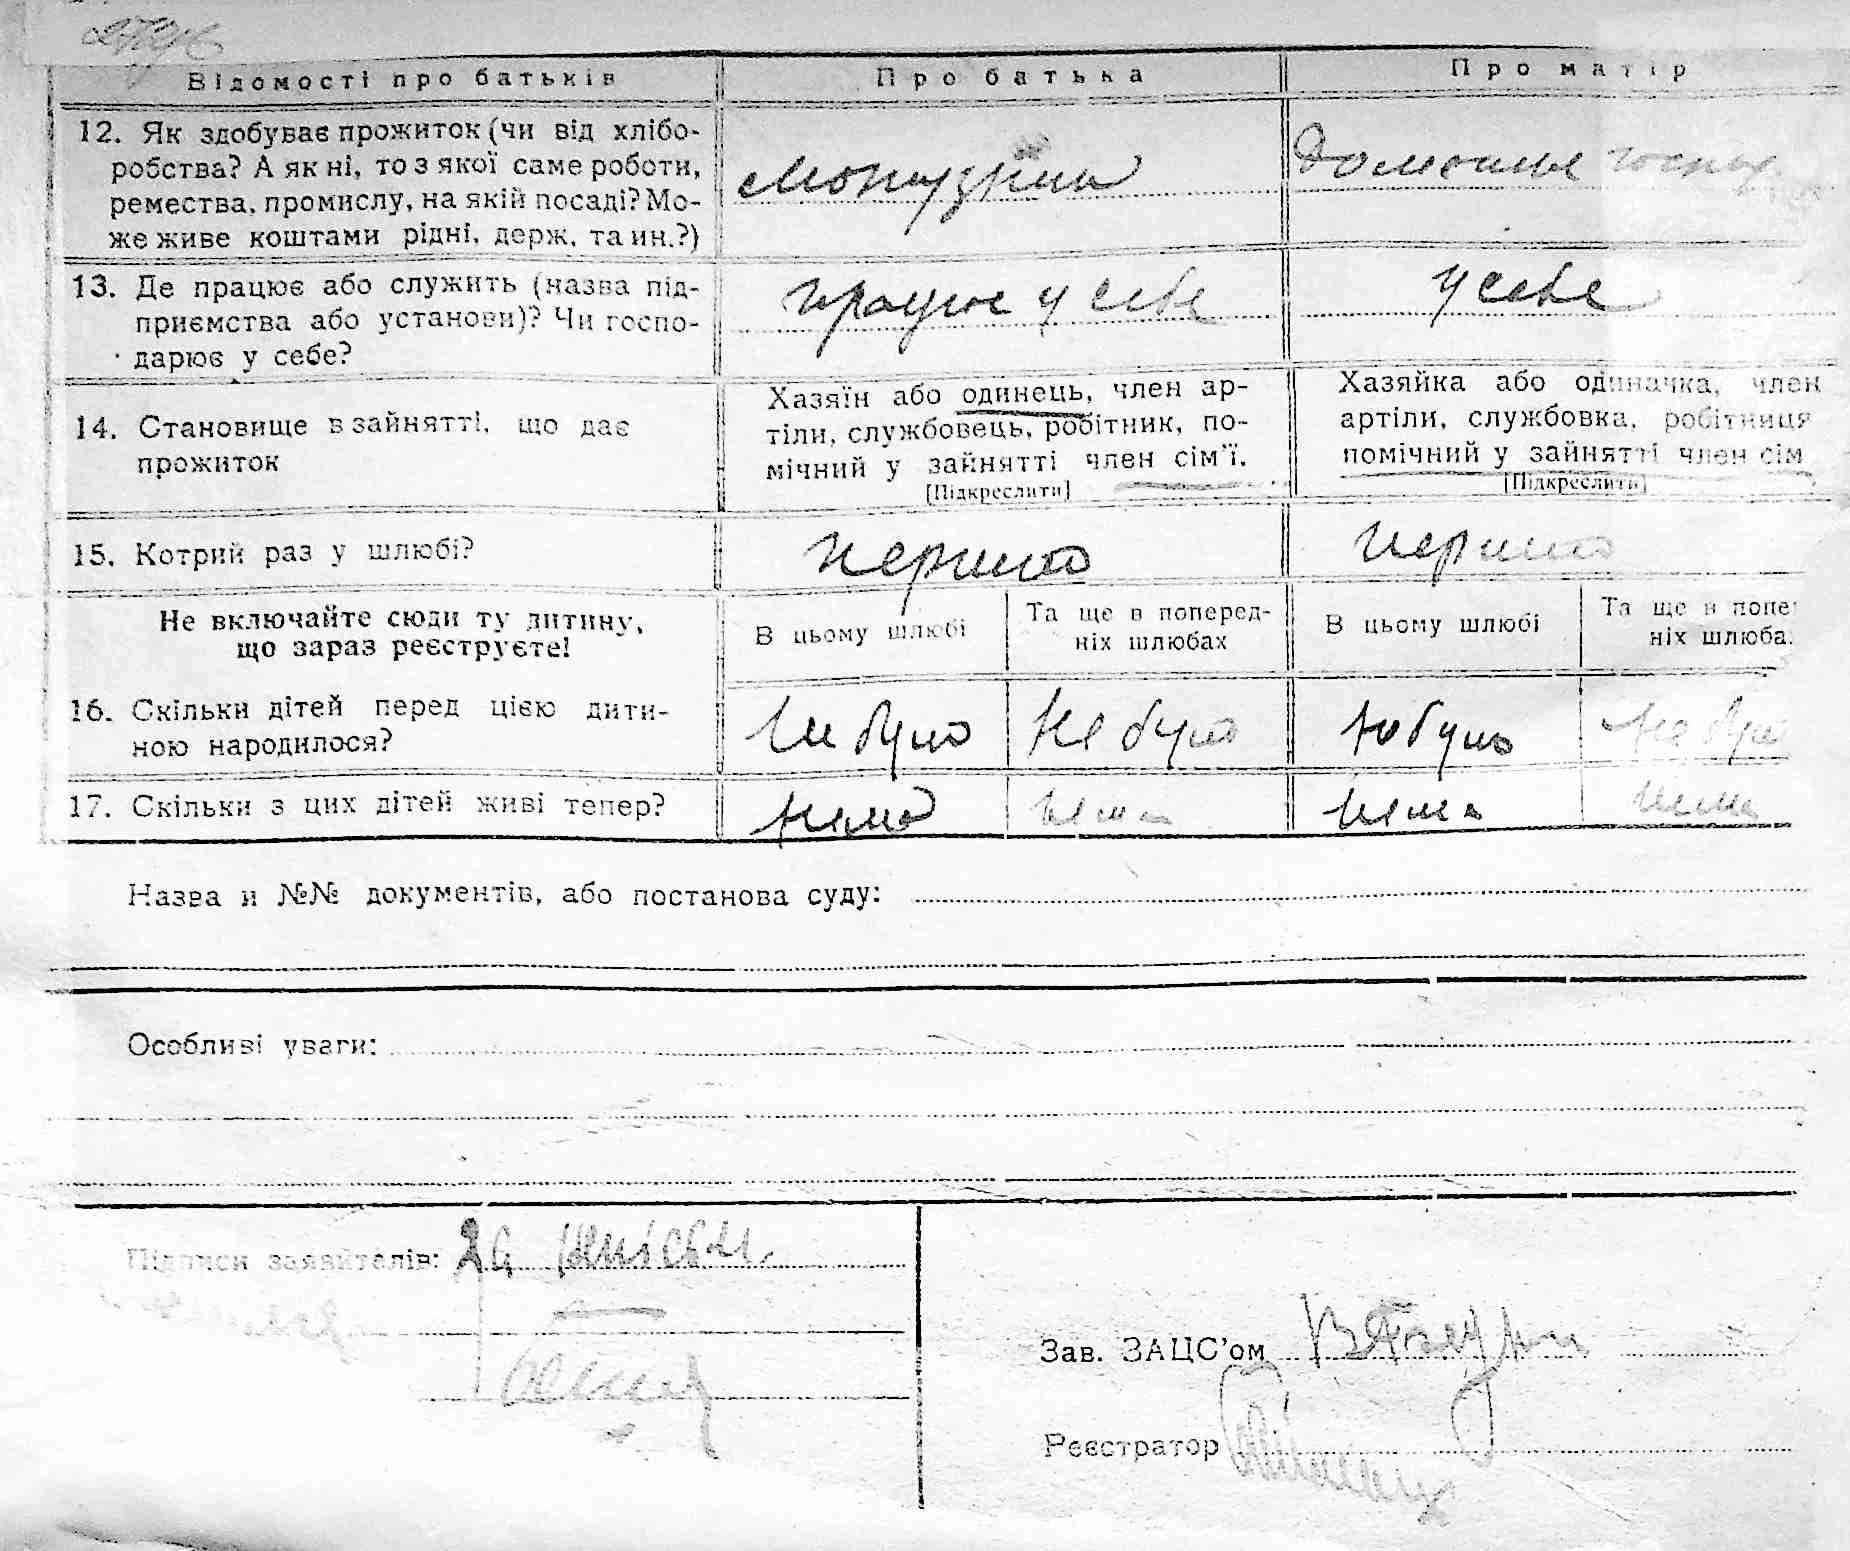 Відомості про батьків
Про батька
Про матір
12. Як здобуває прожиток (чи від хлібо-
робства? А як ні, то з якої саме роботи,
ремества, промислу, на якій посаді? Мо-
же живе коштами рідні, держ. та ин.?)
Домашнє госпо
13. Де працює або служить (назва під-
приємства або установи)? Чи госпо-
дарює у себе?
працює у себе
у себе
14. Становище в зайнятті, що дає
прожиток
Хазяїн або одинець, член ар-
тіли, службовець, робітник, по-
мічний у зайнятті член сім'ї.
[Підкреслити]
Хазяйка або одиначка, член
артіли, службовка, робітниця
помічний у зайнятті член сім
[Підкреслити]
15. Котрий раз у шлюбі?
перший
перший
Не включайте сюди ту дитину,
що зараз реєструєте!
В цьому шлюбі
Та ще в поперед-
ніх шлюбах
В цьому шлюбі
Та ще в попе
ніх шлюба
16. Скільки дітей перед цією дити-
ною народилося?
Не було
Не було
Не було
Не було
17. Скільки з цих дітей живі тепер?
нема
нема
нема
нема
Назва и №№ документів, або постанова суду:
Особливі уваги:
Підписи заявителів:
Зав. ЗАЦС'ом
Реєстратор